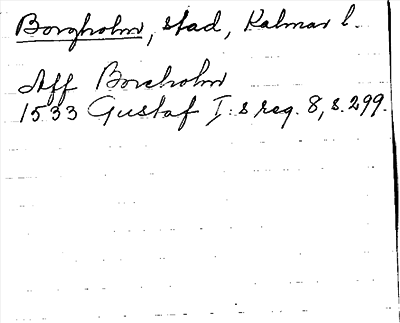 Borgholm, stad, Kalmar l.
Aff Borcholm
1533 Gustaf I:s reg. 8, s. 299.